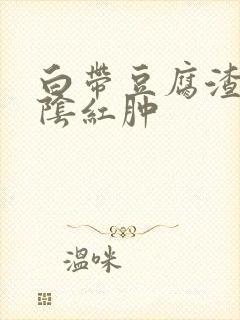 白帶豆腐渣
陰紅肿
溫咪